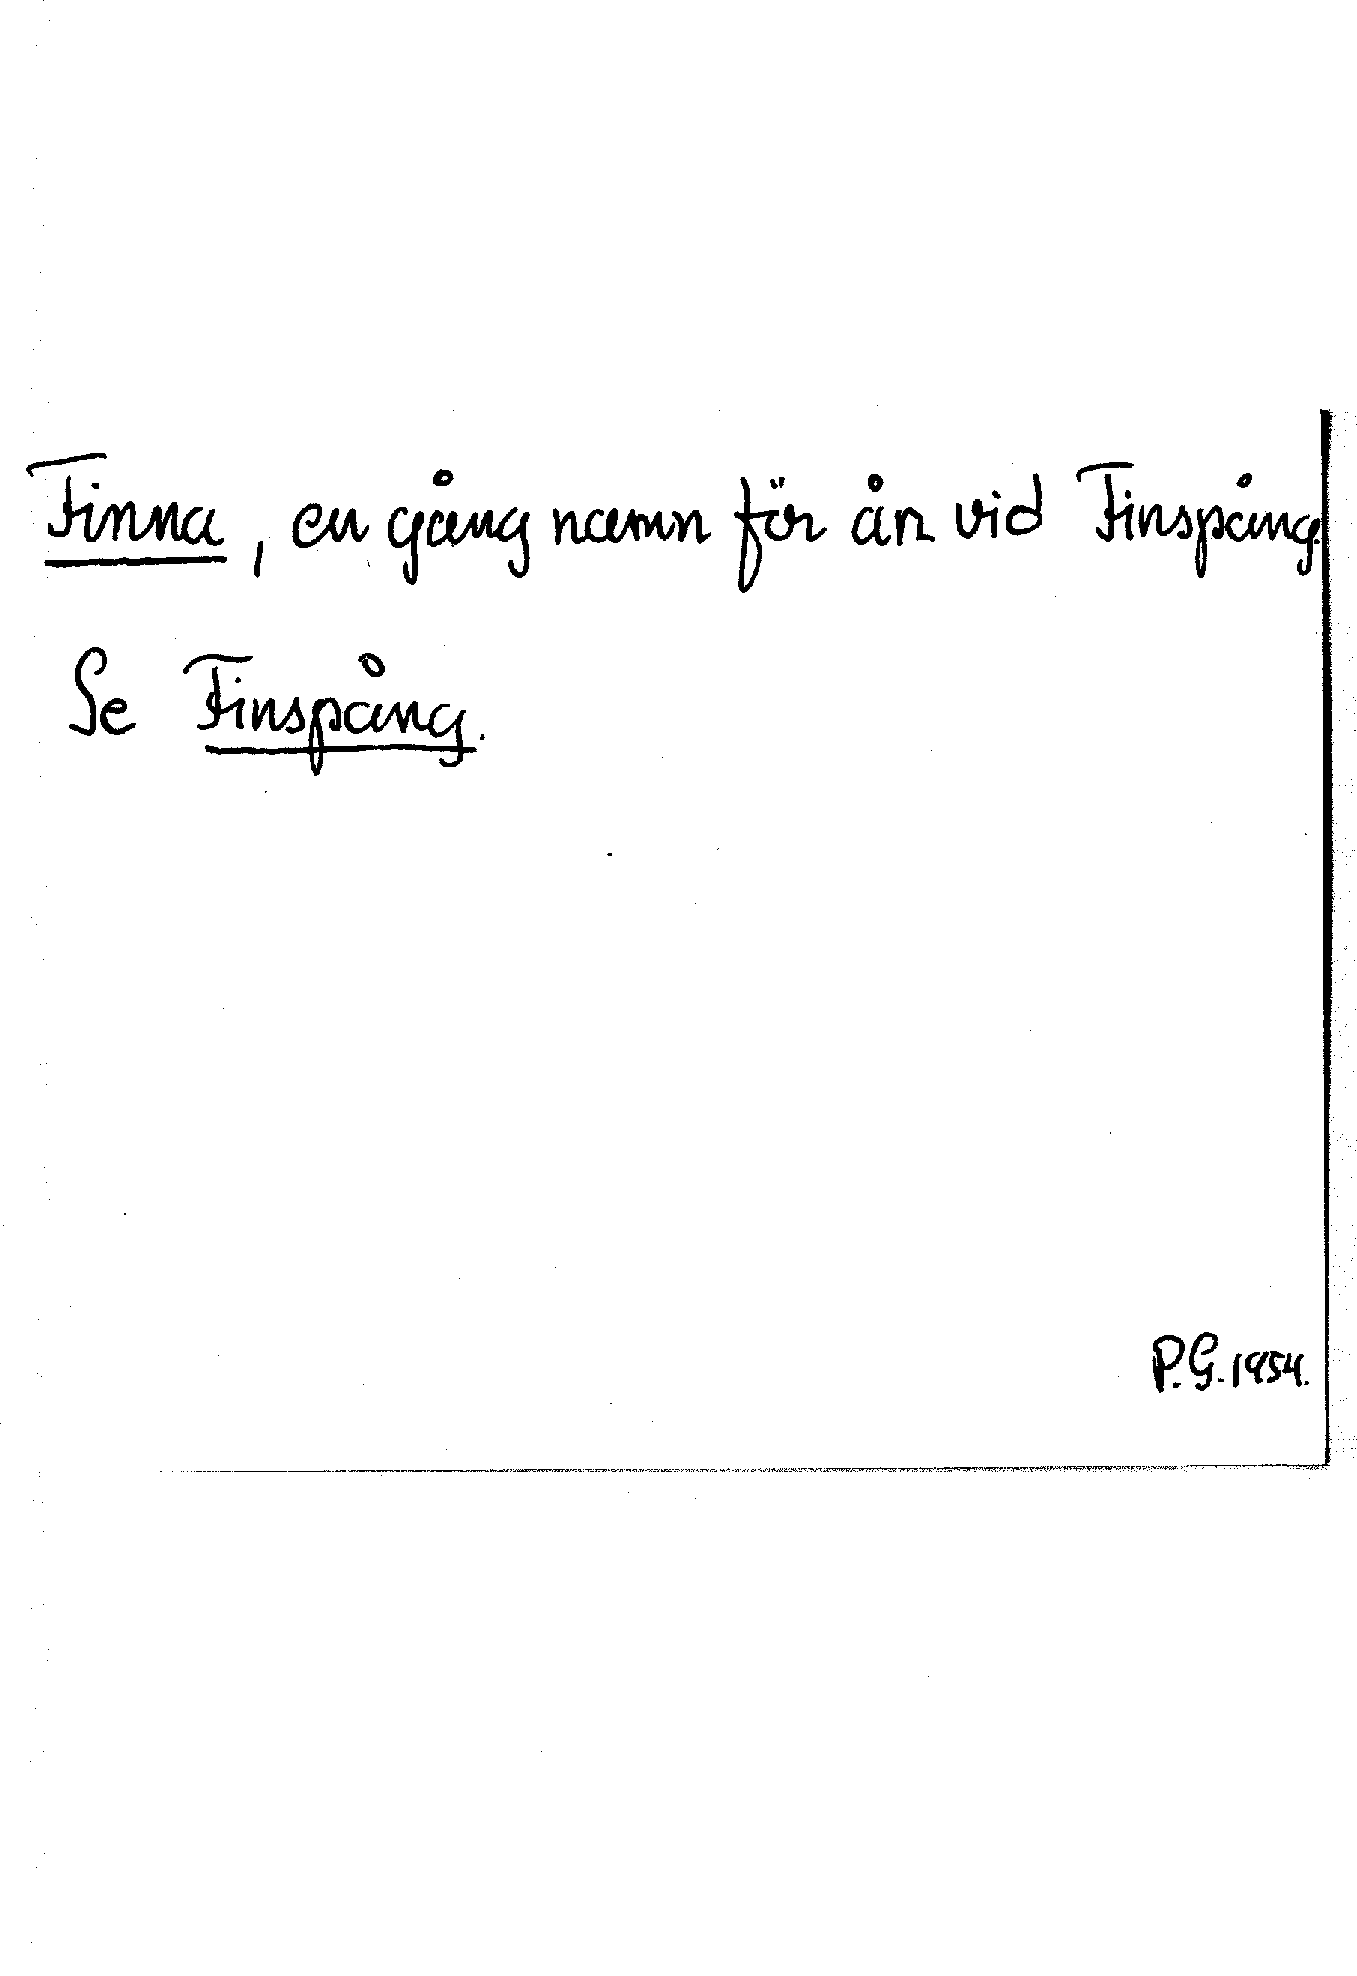 Finna, en gång namn för ån vid Finspång.
Se Finspång.
P.G. 1954.